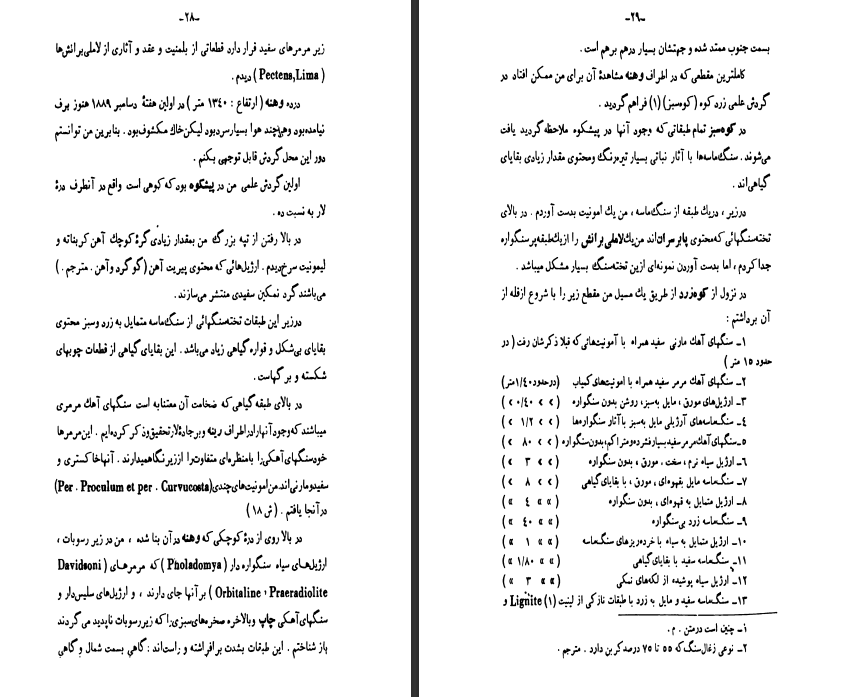 ـ۲۸ـ
زیر مرمرهای سفید قرار دارد قطعاتی از بلمنیت و عقد و آثاری از لاملی‌برانش‌ها
( Pectens,Lima ) دیدم .
دره وهنه ( ارتفاع : ۱۳۴۰ متر ) در اولین هفتهٔ دسامبر ۱۸۸۹ هنوز برف
نیامده‌بود وهرچند هوا بسیارسردبود لیکن‌خاك مکشوف‌بود . بنابرین من توانستم
دور این محل گردش قابل توجهی بکنم .
اولین گردش علمی من در پیشکوه بود که کوهی است واقع در آنطرف درهٔ
لار به نسبت ده .
در بالا رفتن از تپه بزرگ من بمقدار زیادی گرهٔ کوچك آهن کربناته و
لیمونیت سرخ‌دیدم . ارژیل‌هائی که محتوی پیریت آهن (گوگرد وآهن . مترجم . )
می‌باشند گرد نمکین سفیدی منتشر می‌سازند .
درزیر این طبقات تخته‌سنگهائی از سنگ‌ماسه متمایل به زرد وسبز محتوی
بقایای بی‌شکل و قواره گیاهی زیاد می‌باشد . این بقایای گیاهی از قطعات چوبهای
شکسته و برگهاست .
در بالای طبقه گیاهی که ضخامت آن معتنابه است سنگهای آهك مرمری
میباشند که‌وجود آنهارادراطراف رینه وبرجادهٔلارتحقیق‌وذکر کرده‌ایم . این‌مرمرها
خودسنگهای آهکی‌را بامنظره‌ای متفاوت‌را اززیرنگاهمیدارند . آنهاخاکستری و
سفیدومارنی‌اند.من‌امونیت‌های‌چندی(Per . Proculum et per . Curvucosta)
درآنجا یافتم . (ش ۱۸ )
در بالا روی از درهٔ کوچکی که وهنه درآن بنا شده ، من در زیر رسوبات ،
ارژیل‌های سیاه سنگواره دار ( Pholadomya ) که مرمرهای ( Davidsoni
Orbitaline ، Praeradiolite ) برآنها جای دارند ، و ارژیل‌های سلیس‌دار و
سنگهای‌آهکی چاپ وبالاخره صخره‌های‌سبزی‌را که زیررسوبات ناپدید می گردند
باز شناختم . این طبقات بشدت برافراشته و راست‌اند : گاهی بسمت شمال و گاهی
ـ۲۹ـ
بسمت جنوب ممتد شده و جهتشان بسیار درهم برهم است .
کاملترین مقطعی که در اطراف وهنه مشاهدهٔ آن برای من ممکن افتاد در
گردش علمی زرد کوه (کوه‌سبز) (۱) فراهم گردید .
در کوه‌سبز تمام طبقاتی که وجود آنها در پیشکوه ملاحظه گردید یافت
می‌شوند . سنگ‌ماسه‌ها با آثار نباتی بسیار تیره‌رنگ ومحتوی مقدار زیادی بقایای
گیاهی‌اند .
درزیر ، دریك طبقه از سنگ‌ماسه ، من یك امونیت بدست آوردم . در بالای
تخته‌سنگهائی که‌محتوی پابرسران‌اند من‌یك‌لاملی‌برانش را ازیك‌طبقه‌پرسنگواره
جداکردم ، اما بدست آوردن نمونه‌ای ازین تخته‌سنگ بسیار مشکل میباشد .
در نزول از کوه‌زرد از طریق یك مسیل من مقطع زیر را با شروع ازقله از
آن برداشتم :
۱ـ سنگهای آهك مارنی سفید همراه با آمونیت‌هائی‌که قبلا ذکرشان رفت ( در
حدود ۱۵ متر )
۲ـ سنگهای آهك مرمر سفید همراه با امونیت‌های کمیاب (درحدود۱/۴۰متر)
۳ـ ارژیل‌های مورق ، مایل به‌سبز، روشن بدون سنگواره ( » » ۰/۴۰ » )
۴ـ سنگ‌ماسه‌های آرژیلی مایل به‌سبز با آثار سنگواره‌ها ( » » ۱/۲ » )
۵ـسنگهای‌آهك‌مرمرسفیدبسیارفشرده‌ومتراکم،بدون‌سنگواره ( » » ۸۰ » )
۶ـ ارژیل سیاه نرم ، سخت . مورق ، بدون سنگواره ( » » ۳ » )
۷ـ سنگ‌ماسه مایل بقهوه‌ای ، مورق ، با بقایای گیاهی ( » » ۸ » )
۸ـ ارژیل متمایل به قهوه‌ای ، بدون سنگواره ( » » ۴ » )
۹ـ سنگ‌ماسه زرد بی‌سنگواره ( » » ۴۰ » )
۱۰ـ ارژیل متمایل به سیاه با خرده‌ریزهای سنگ‌ماسه ( » » ۱ » )
۱۱ـ سنگ‌ماسه سفید با بقایای گیاهی ( » » ۱/۸۰ » )
۱۲ـ ارژیل سیاه پوشیده از لکه‌های نمکی ( » » ۳ » )
۱۳ـ سنگ‌ماسه سفید و مایل به زرد با طبقات نازکی از لینیت Lignite (۱) و
۱ـ چنین است درمتن . م .
۲ـ نوعی زغال‌سنگ که ۵۵ تا ۷۵ درصد کربن دارد . مترجم .